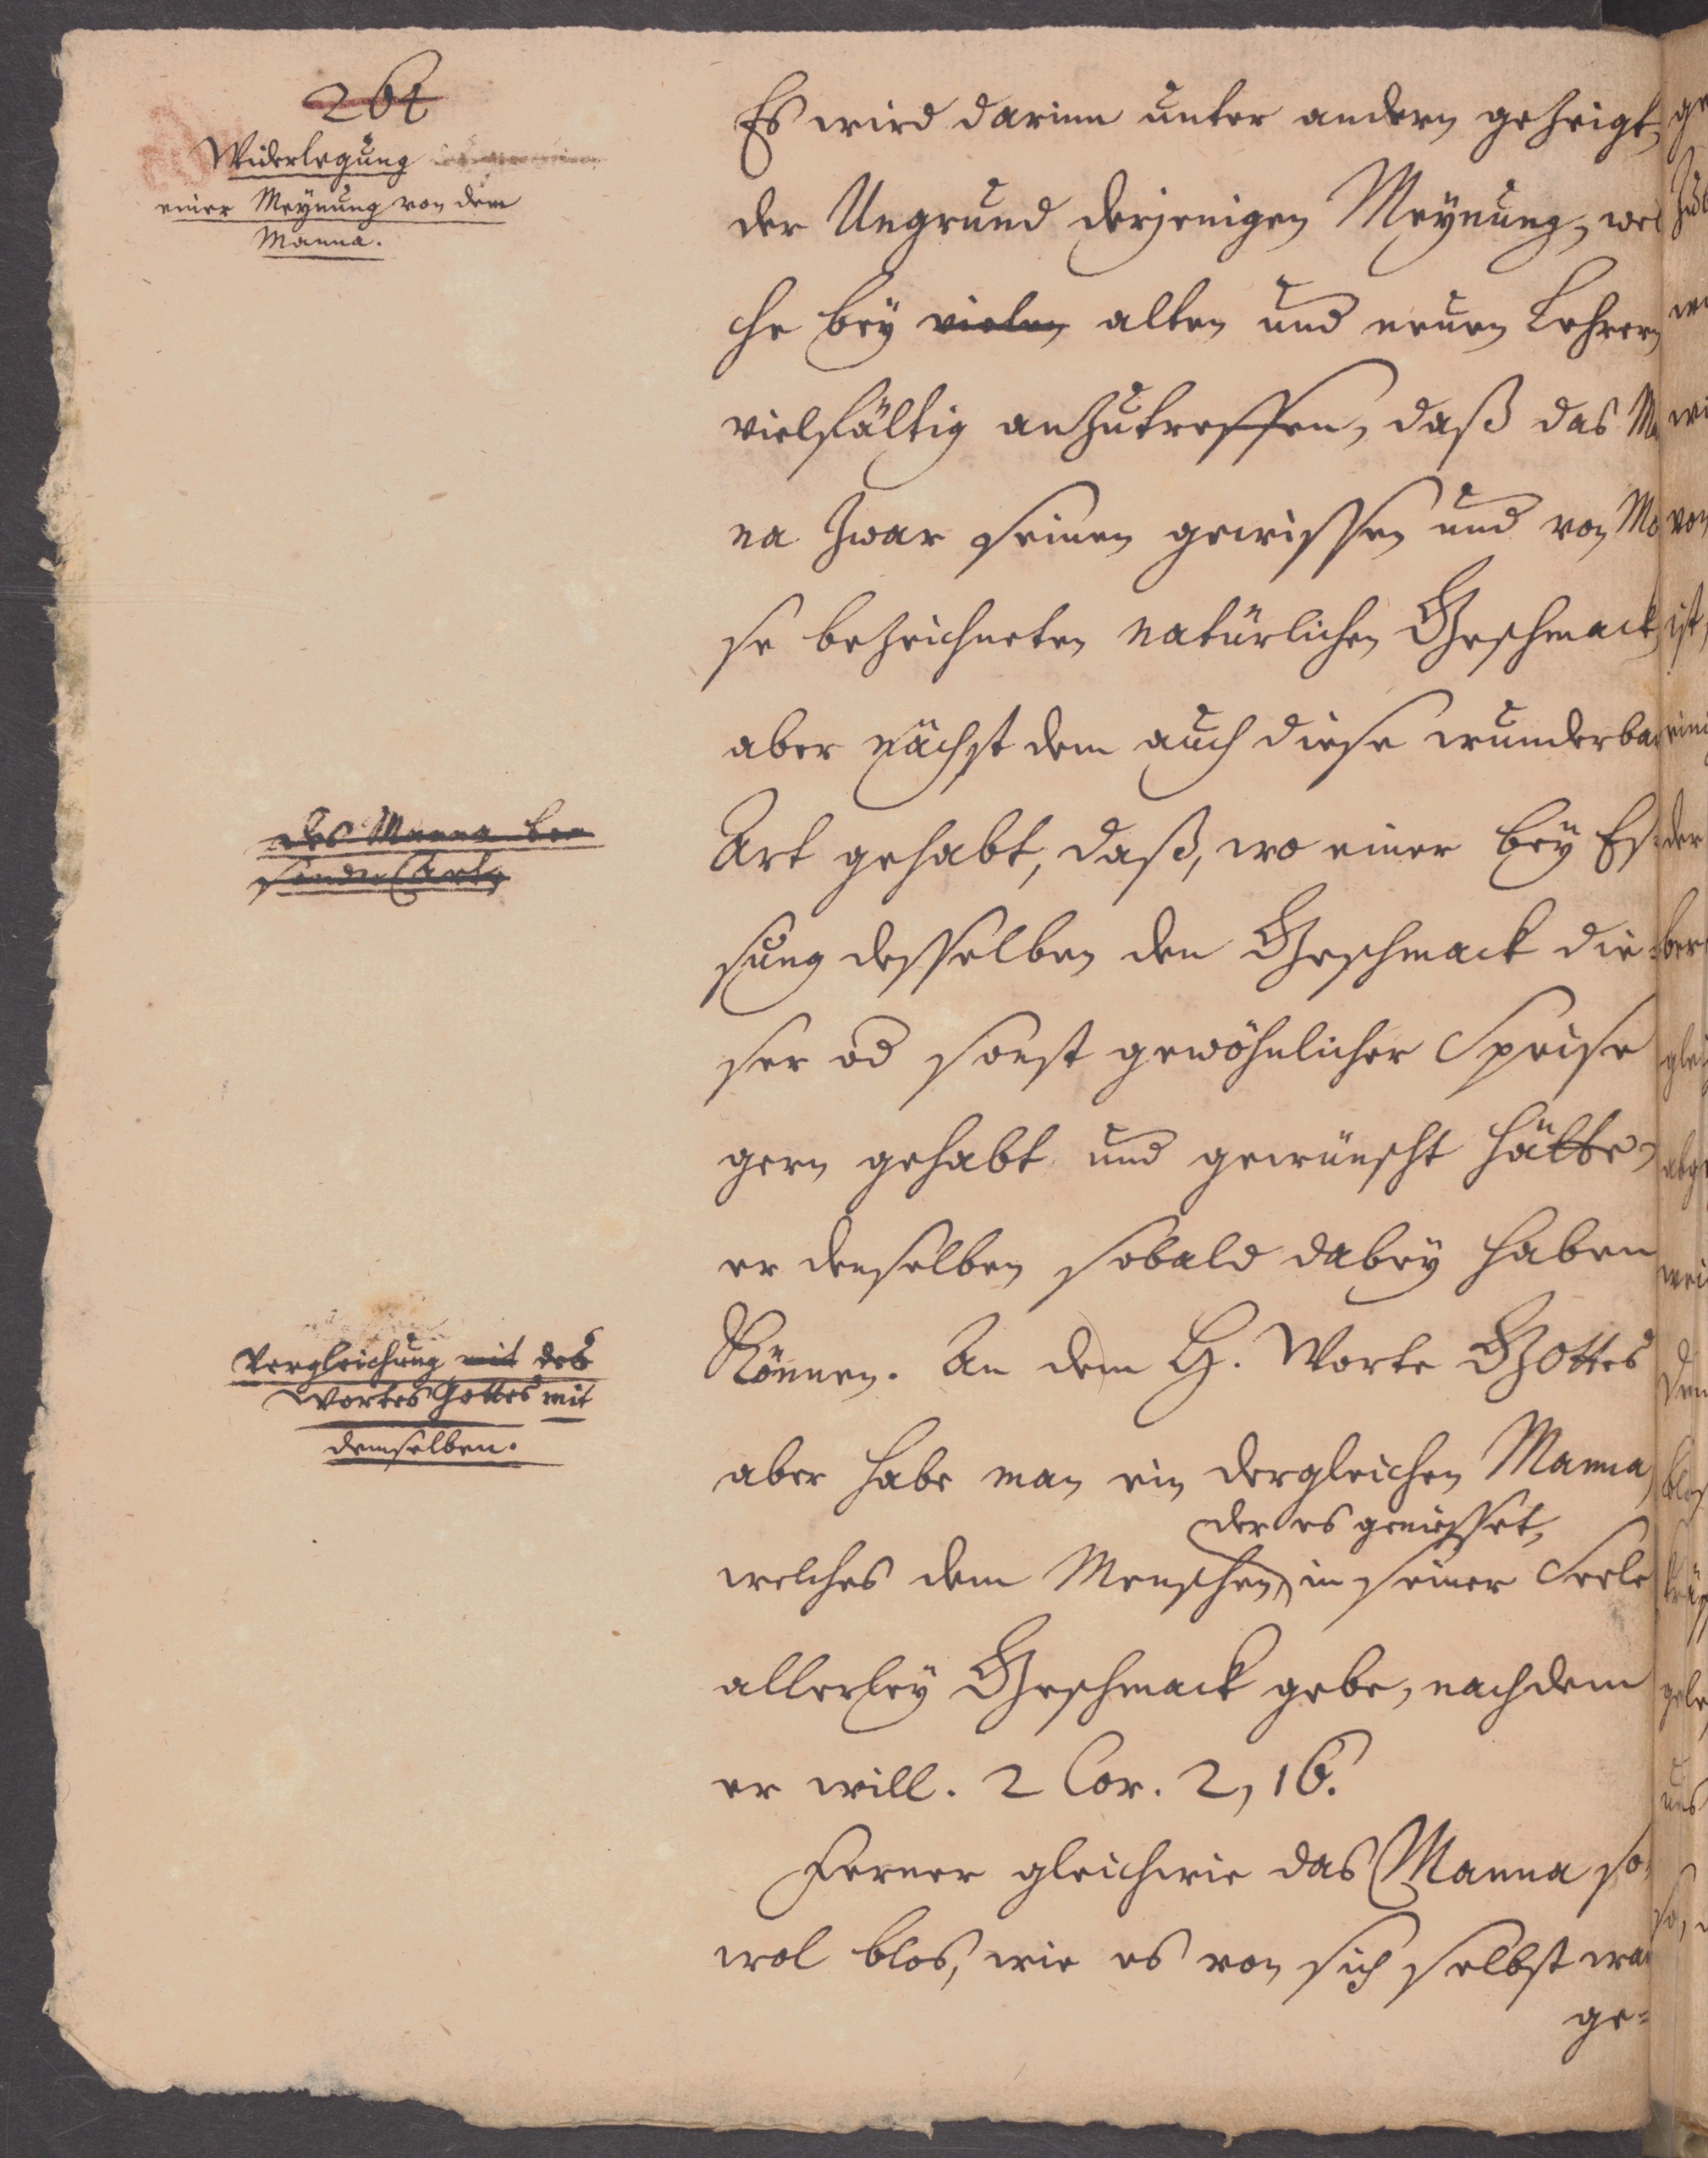 264
Widerlegung
einer Meynung von dem
Manna.
Es wird darinn unter andern gezeigt,
der Ungrund derjenigen Meynung, wel
che bey vielen alten und neuen Lehrern
vielfältig anzutreffen, daß das Ma
na zwar seinen gewissen und von Mo
se bezeichneten natürlichen Geschmack,
aber nächst dem auch diese wunderbar
des Manna be
sondere Art,
Art gehabt, daß, wo einer bey Es-
sung desselben den Geschmack die-
ser od sonst gewöhnlicher Speise
gern gehabt und gewünscht hätte,
er denselben sobald dabey haben
Vergleichung mit des
Wortes Gottes mit
demselben.
Können. An dem H. Worte Gottes
aber habe man ein dergleichen Manna,
der es geniesset,
welches dem Menschen, in seiner Seele
allerley Geschmack gebe, nachdem
er will. 2 Cor. 2, 16.
Ferner gleichwie das Manna so-
wol blos, wie es von sich selbst war
ge-